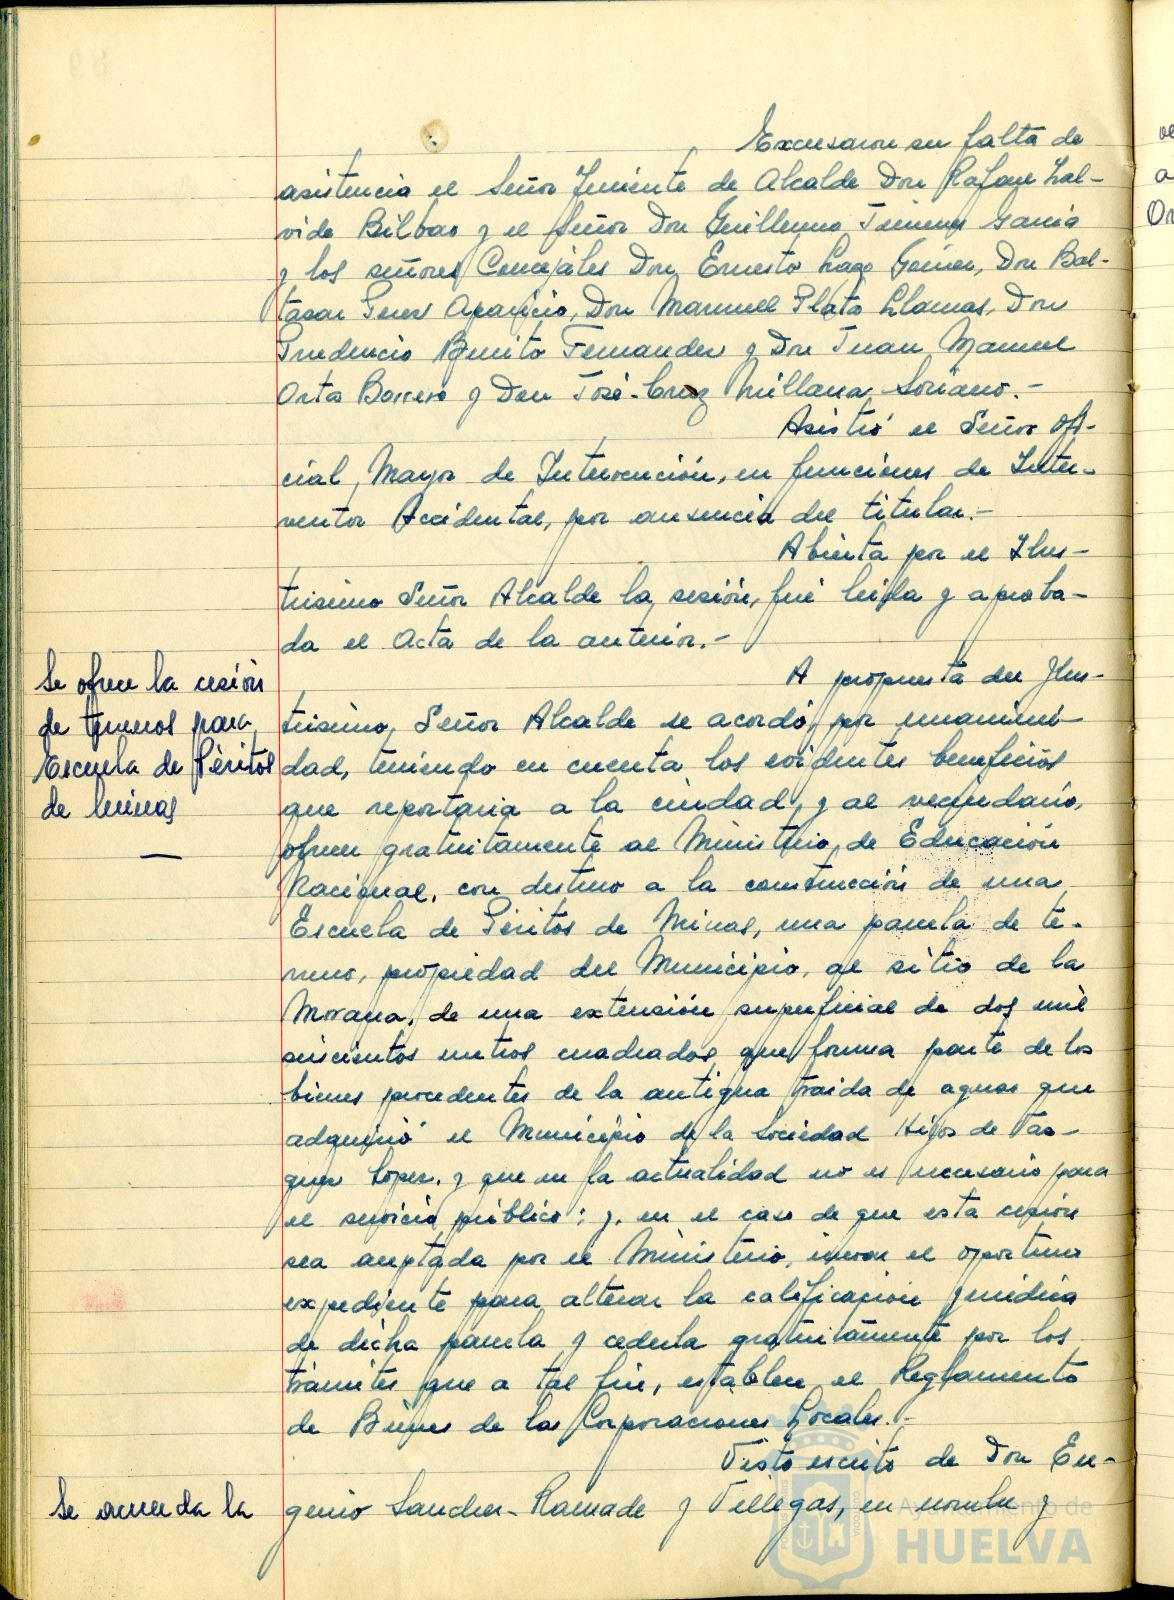 Excusaron su falta de
asistencia el Señor Teniente de Alcalde Don Rafael Sal-
vide Bilbao y el Señor Don Guillermo Jimenez Garcia
y los señores Concejales Don Ernesto Lago Gómez, Don Bal-
tasar Perez Aparicio, Don Manuel Plata Llamas, Don
Prudencio Benito Fernandez y Don Juan Manuel
Orta Borrero y Don José-Cruz Millana Soriano.-
Asistió el Señor Ofi-
cial Mayor de Intervención, en funciones de Inter-
ventor Accidental, por ausencia del titular.-
Abierta por el Ilus-
trisimo Señor Alcalde la sesión, fué leida y aproba-
da el Acta de la anterior.-
Se ofrece la cesión
de terrenos para
Escuela de Péritos
de minas
A propuesta del Ilus-
trisimo Señor Alcalde se acordó, por unanimi-
dad, teniendo en cuenta los evidentes beneficios
que reportaria a la ciudad, y al vecindario,
ofrecer gratuitamente al Ministerio de Educación
Nacional, con destino a la construcción de una
Escuela de Péritos de Minas, una parcela de te-
rreno, propiedad del Municipio, al sitio de la
Morana, de una extensión superficial de dos mil
seiscientos metros cuadrados que forma parte de los
bienes procedentes de la antigua traida de aguas que
adquirió el Municipio de la Sociedad Hijos de Vaz-
quez Lopez, y que en la actualidad no es necesario para
el servicio público; y, en el caso de que esta cesión
sea aceptada por el Ministerio, incoar el oportuno
expediente para alterar la calificación juridica
de dicha parcela y cederla gratuitamente por los
trámites que a tal fin, establece el Reglamento
de Bienes de las Corporaciones Locales.-
Visto escrito de Don Eu-
genio Sanchez-Ramade y Villegas, en nombre y
Se acuerda la
Ayuntamiento de
HUELVA